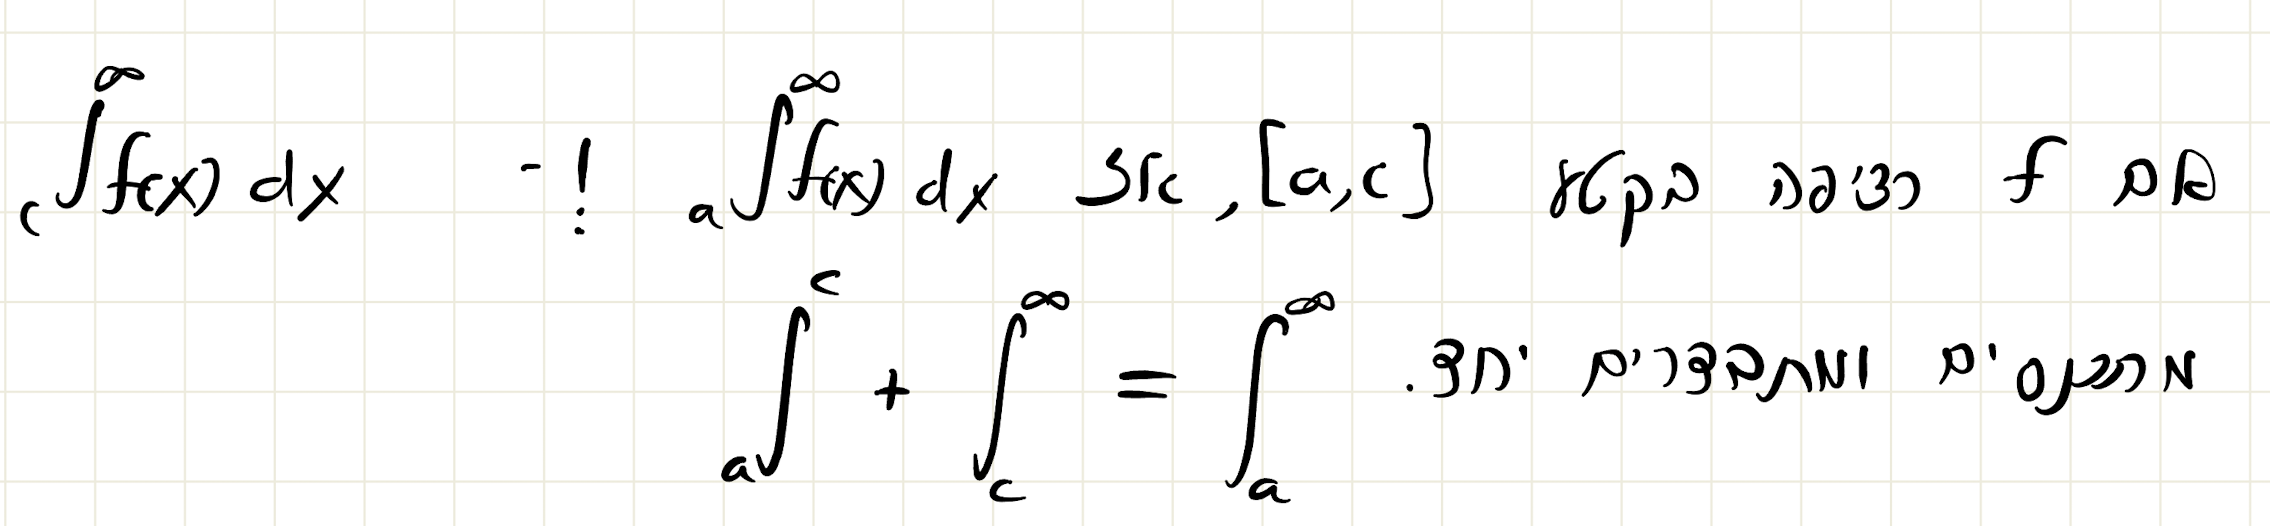 אם f רציפה בקטע [a,c], אז ∫ₐ^∞ f(x) dx ו- ∫_c^∞ f(x) dx
מתכנסים ומתבדרים יחד. ∫ₐ^∞ = ∫_c^∞ + ∫ₐ^c